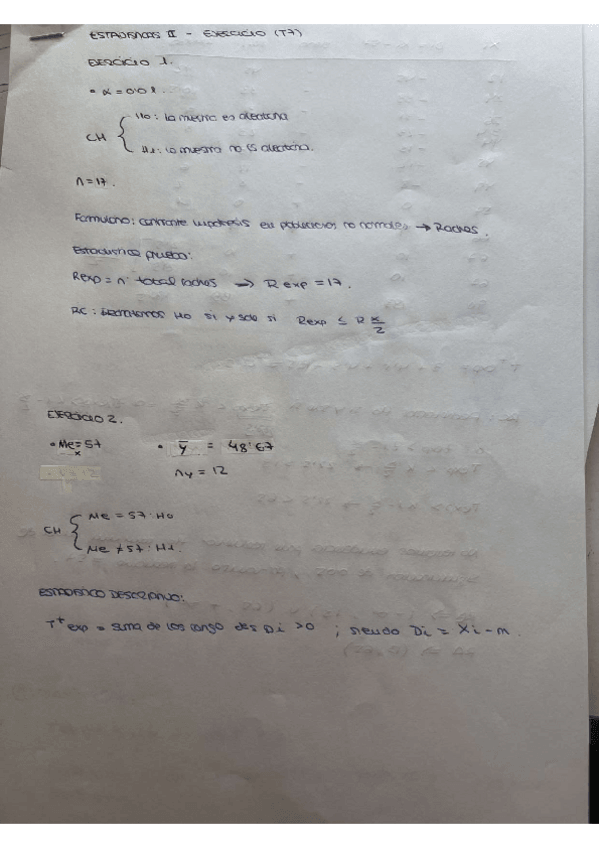 ESTADÍSTICOS II - EJERCICIO (T7)
EJERCICIO 1.
• α = 0'01.
CH { H0: la muestra es aleatoria
H1: la muestra no es aleatoria.
n = 17.
Formulario: contraste hipótesis en poblaciones no normales → Rachas.
Estadístico prueba:
Rexp = nº total rachas → Rexp = 17.
RC: Rechazamos H0 si y solo si Rexp ≤ R α/2
EJERCICIO 2.
• Me = 57 • ȳ = 48'67
x
ny = 12
CH { Me = 57: H0
Me ≠ 57: H1.
ESTADÍSTICO DESCRIPTIVO:
T+ exp = suma de los rango des Di > 0 ; siendo Di = Xi - m.